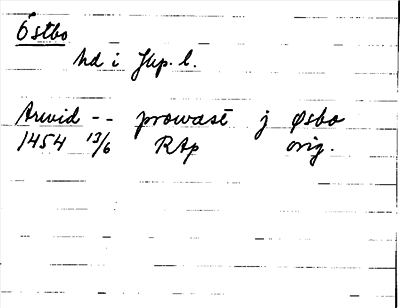 Östbo
hd i Jkp. l.
Arwid -- prowast j Øsbo
1454 13/6 RAp orig.